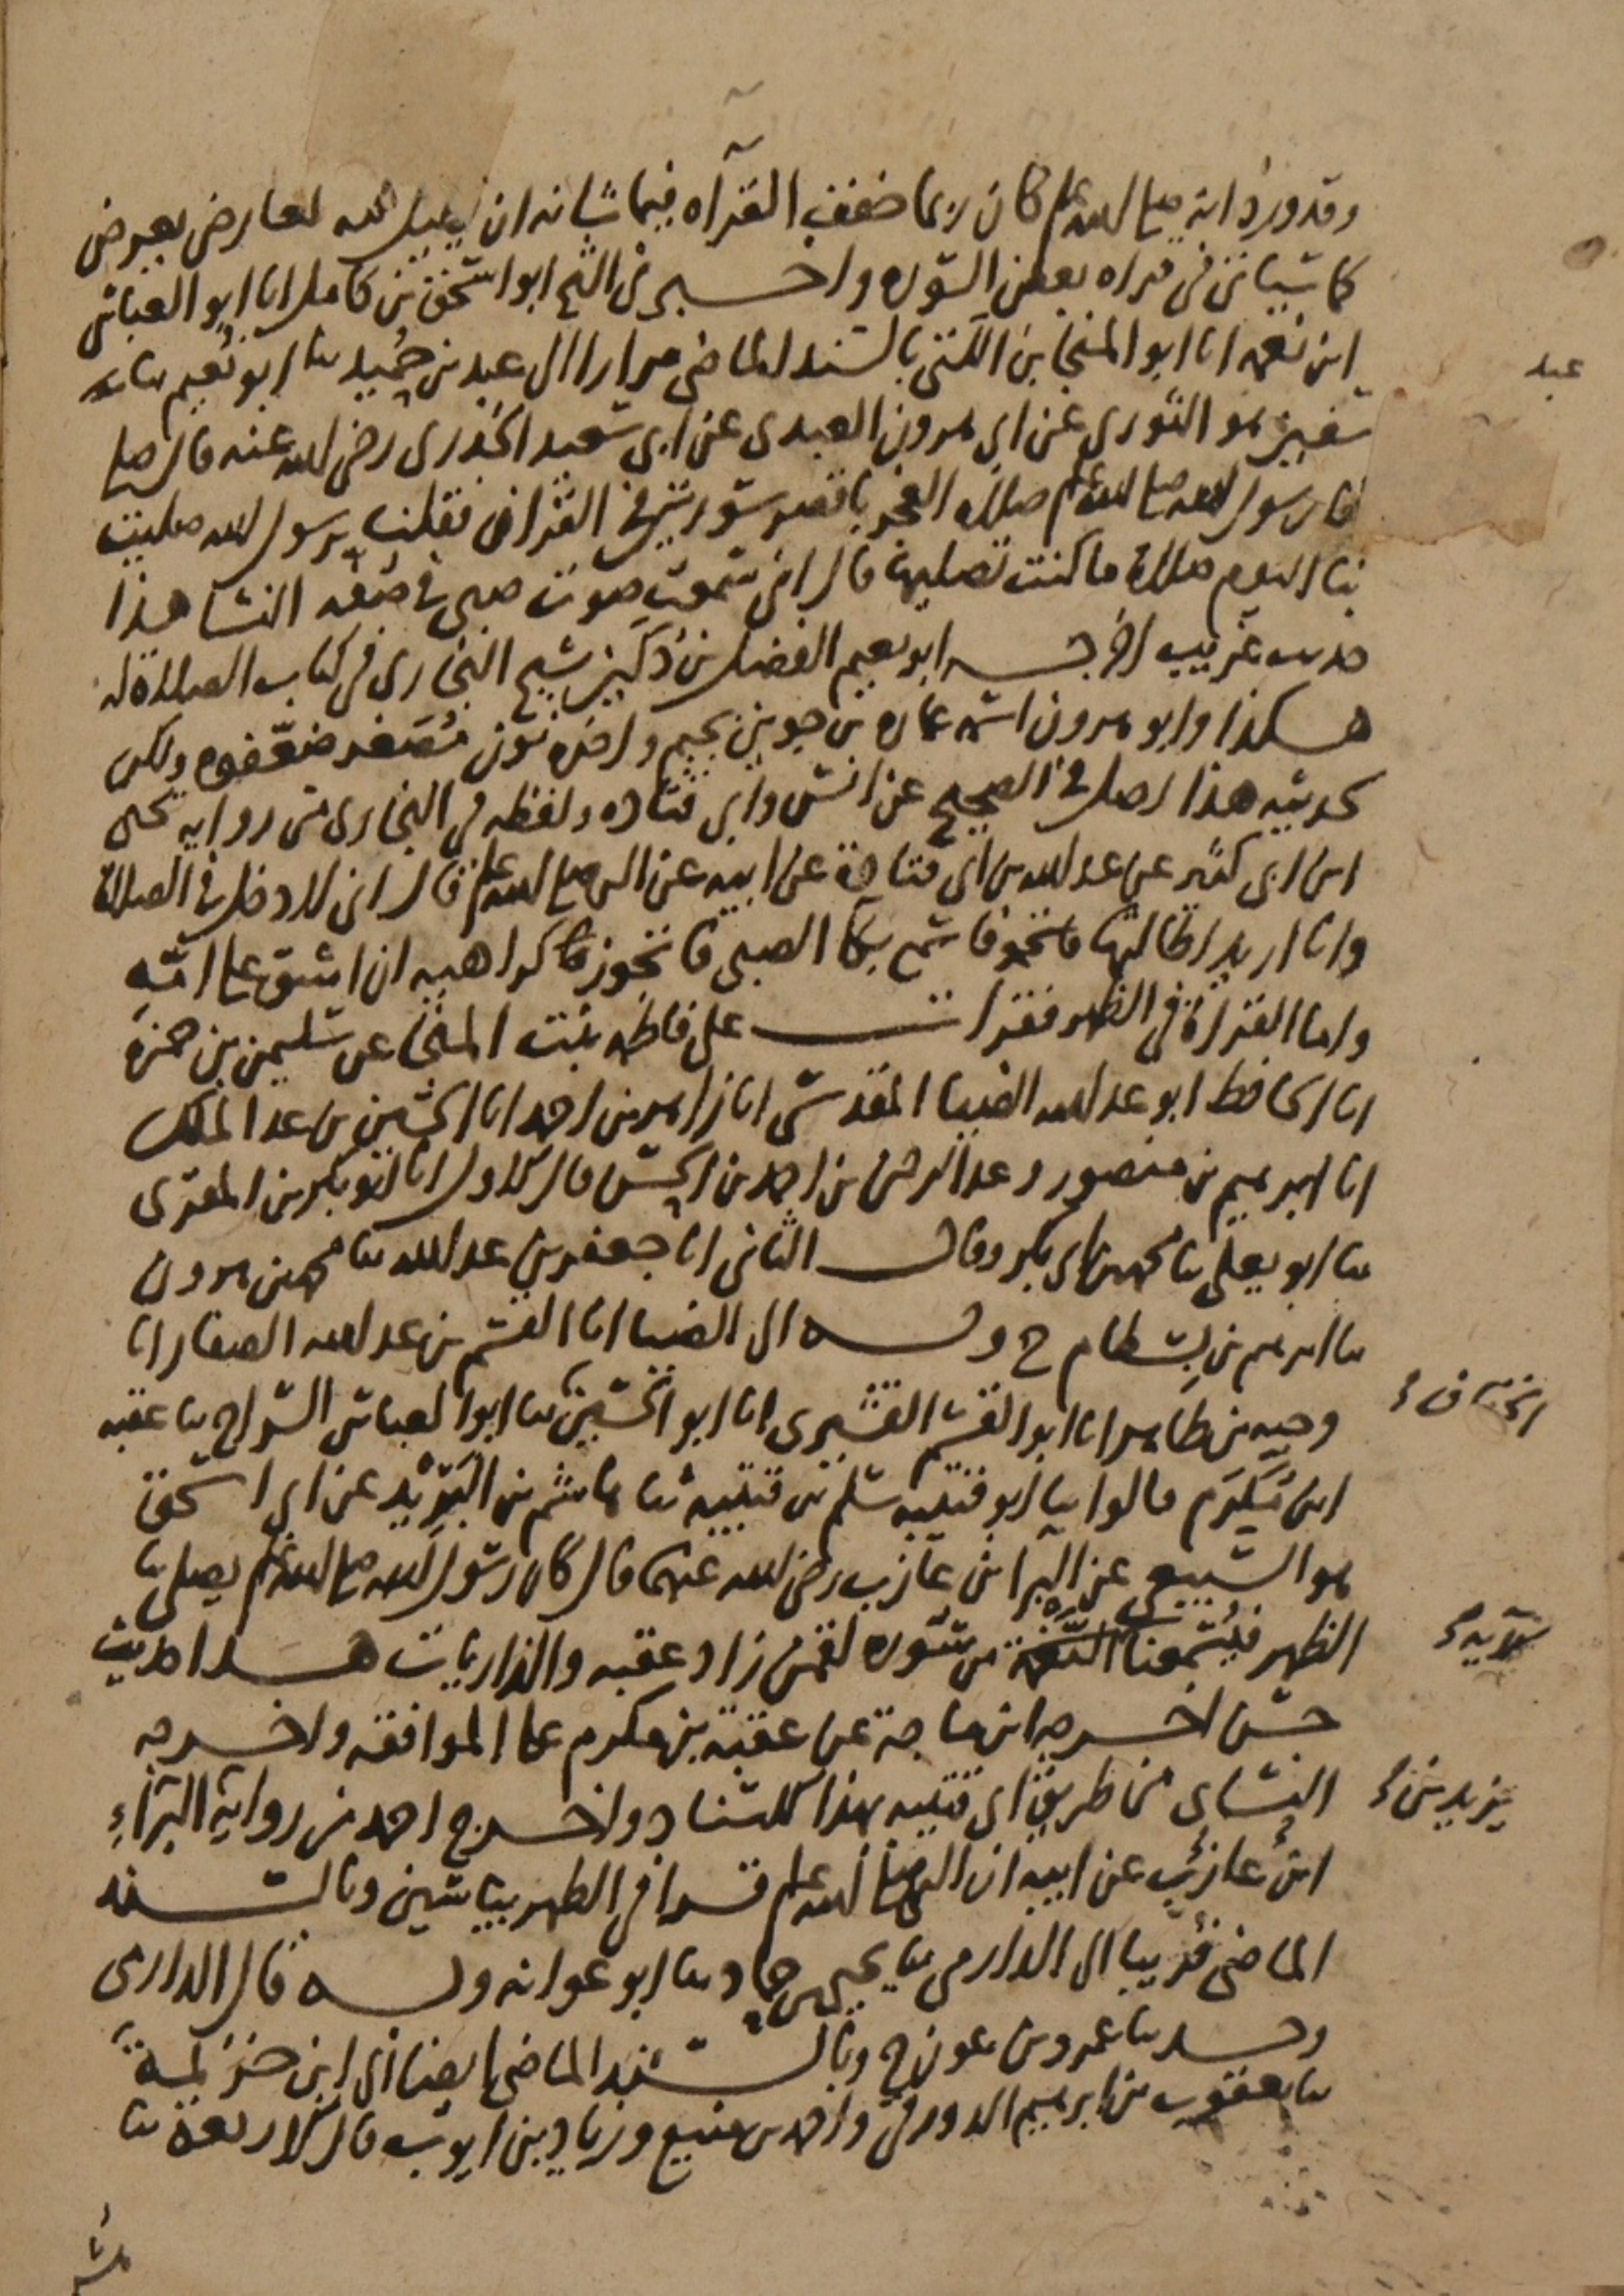 وقد ورد انه صلى الله عليه وسلم كان ربما خفف القراه فيما شانه ان لعارض يعرض
كما سياتي في قراه بعض السوره واخبرني الشيخ ابو اسحق بن كامل انا ابو العباس
ابن نعمه انا ابو المنجا بن اللتي بالسند الماضي مرارا الى عبد بن حميد ثنا ابو نعيم ثنا
سفين هو الثوري عن ابي هرون العبدي عن ابي سعيد الخدري رضي الله عنه قال صلى
بنا رسول الله صلى الله عليه وسلم صلاه الفجر باقصر سورتين في القران فقلت يرسول الله صليت
بنا اليوم صلاة ما كنت تصليها قال اني سمعت صوت صبي في صفه النسا هذا
حديث غريب اخرجه ابو نعيم الفضل بن دكين شيخ البخاري في كتاب الصلاة له
هكذا وابو هرون اسمه عماره بن جوين بجيم واخره نون مصغر ضعفوه ولكن
لحديثه هذا اصل في الصحيح عن انس وابي قتاده ولفظه في البخاري من روايه يحيى
ابن ابي كثير عن عبد الله بن ابي قتادة عن ابيه عن النبي صلى الله عليه وسلم قال اني لادخل في الصلاة
وانا اريد اطالتها فاسمع بكا الصبي فاتجوز كراهيه ان اشق على امه
واما القراة في الظهر فقرات على فاطمه بنت المنجا عن سليمن بن حمزه
انا الحافظ ابو عبد الله الضيا المقدسي انا زاهر بن احمد انا الحسين بن عبد الملك
انا ابرهيم بن منصور وعبد الرحمن بن احمد بن الحسن قال الاول انا ابو بكر بن المقري
ثنا ابو يعلى ثنا محمد بن ابي بكر وقال الثاني انا جعفر بن عبد الله ثنا محمد بن هرون
ثنا ابرهيم بن بسطام ح وبه الى الضيا انا القسم بن عبد الله الصفار انا
وجيه بن طاهر انا ابو القسم القشيري انا ابو الحسين ثنا ابو العباس السراج ثنا عقبه
ابن مكرم قالوا ثنا ابو قتيبه سلم بن قتيبه ثنا هاشم بن البريد عن ابي اسحق
هو السبيعي عن البرا بن عازب رضي الله عنهما قال كان رسول الله صلى الله عليه وسلم يصلي بنا
الظهر فيسمعنا من سوره لقمن زاد عقبه والذاريات هذا حديث
حسن اخرجه ابن ماجة عن عقبة بن مكرم على الموافقه واخرجه
النساي من طريق ابي قتيبه بهذا الاسناد واخرج احمد من رواية البراء
ابن عازب عن ابيه ان النبي صلى الله عليه وسلم قرا في الظهر بياسين وبالسند
الماضي قريبا الى الدارمي ثنا يحيى بن حماد ثنا ابو عوانه وبه قال الدارمي
وحدثنا عمرو بن عون ح وبالسند الماضي ايضا الى ابن خزيمة
ثنا يعقوب بن ابرهيم الدورقي واحمد بن منيع وزياد بن ايوب قال الاربعة ثنا
عبد
الخفاف
الآيه
يزيد بن